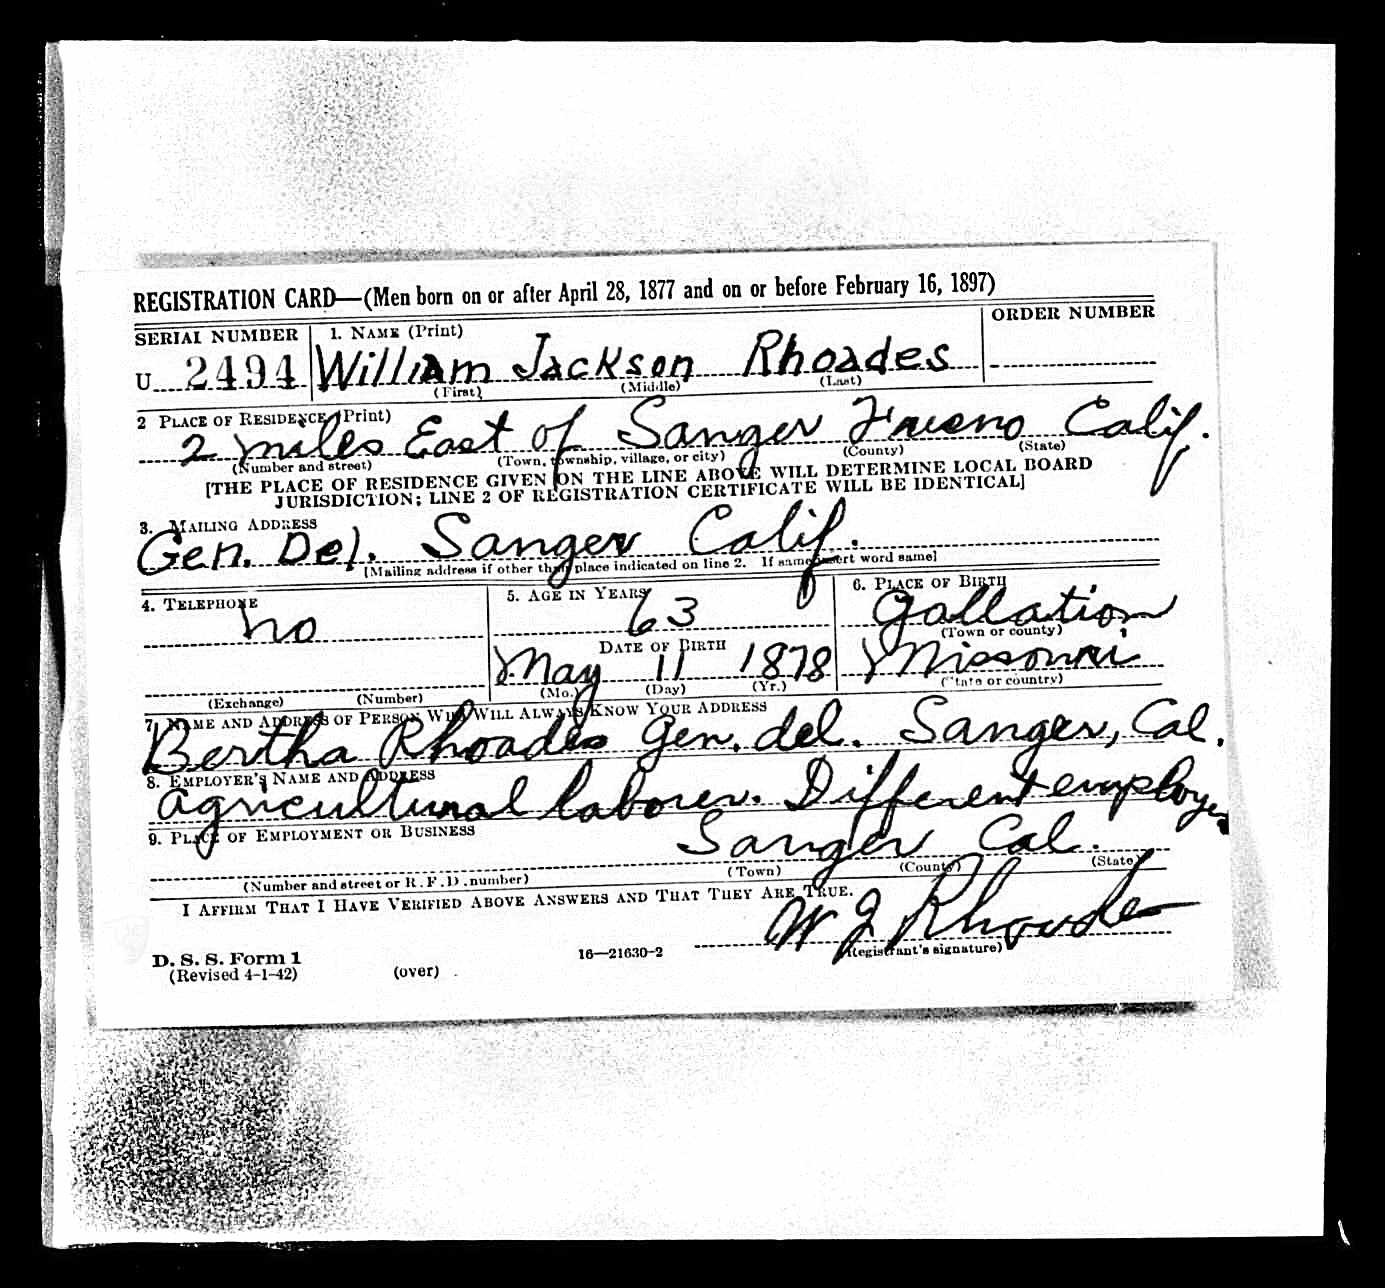 REGISTRATION CARD—(Men born on or after April 28, 1877 and on or before February 16, 1897)
SERIAL NUMBER 1. NAME (Print) ORDER NUMBER
U 2494 William Jackson Rhoades
(First) (Middle) (Last)
2 PLACE OF RESIDENCE (Print)
2 miles East of Sanger Fresno Calif.
(Number and street) (Town, township, village, or city) (County) (State)
[THE PLACE OF RESIDENCE GIVEN ON THE LINE ABOVE WILL DETERMINE LOCAL BOARD
JURISDICTION; LINE 2 OF REGISTRATION CERTIFICATE WILL BE IDENTICAL]
3. MAILING ADDRESS
Gen. Del. Sanger Calif.
[Mailing address if other than place indicated on line 2. If same insert word same]
4. TELEPHONE 5. AGE IN YEARS 6. PLACE OF BIRTH
no 63 Gallation
(Town or county)
DATE OF BIRTH
May 11 1878 Missouri
(Exchange) (Number) (Mo.) (Day) (Yr.) (State or country)
7. NAME AND ADDRESS OF PERSON WHO WILL ALWAYS KNOW YOUR ADDRESS
Bertha Rhoades Gen. del. Sanger, Cal.
8. EMPLOYER'S NAME AND ADDRESS
agricultural laborer. Different employers
9. PLACE OF EMPLOYMENT OR BUSINESS
Sanger Cal.
(Number and street or R. F. D. number) (Town) (County) (State)
I AFFIRM THAT I HAVE VERIFIED ABOVE ANSWERS AND THAT THEY ARE TRUE.
W J Rhoades
D. S. S. Form 1 16—21630-2 (Registrant's signature)
(Revised 4-1-42) (over)